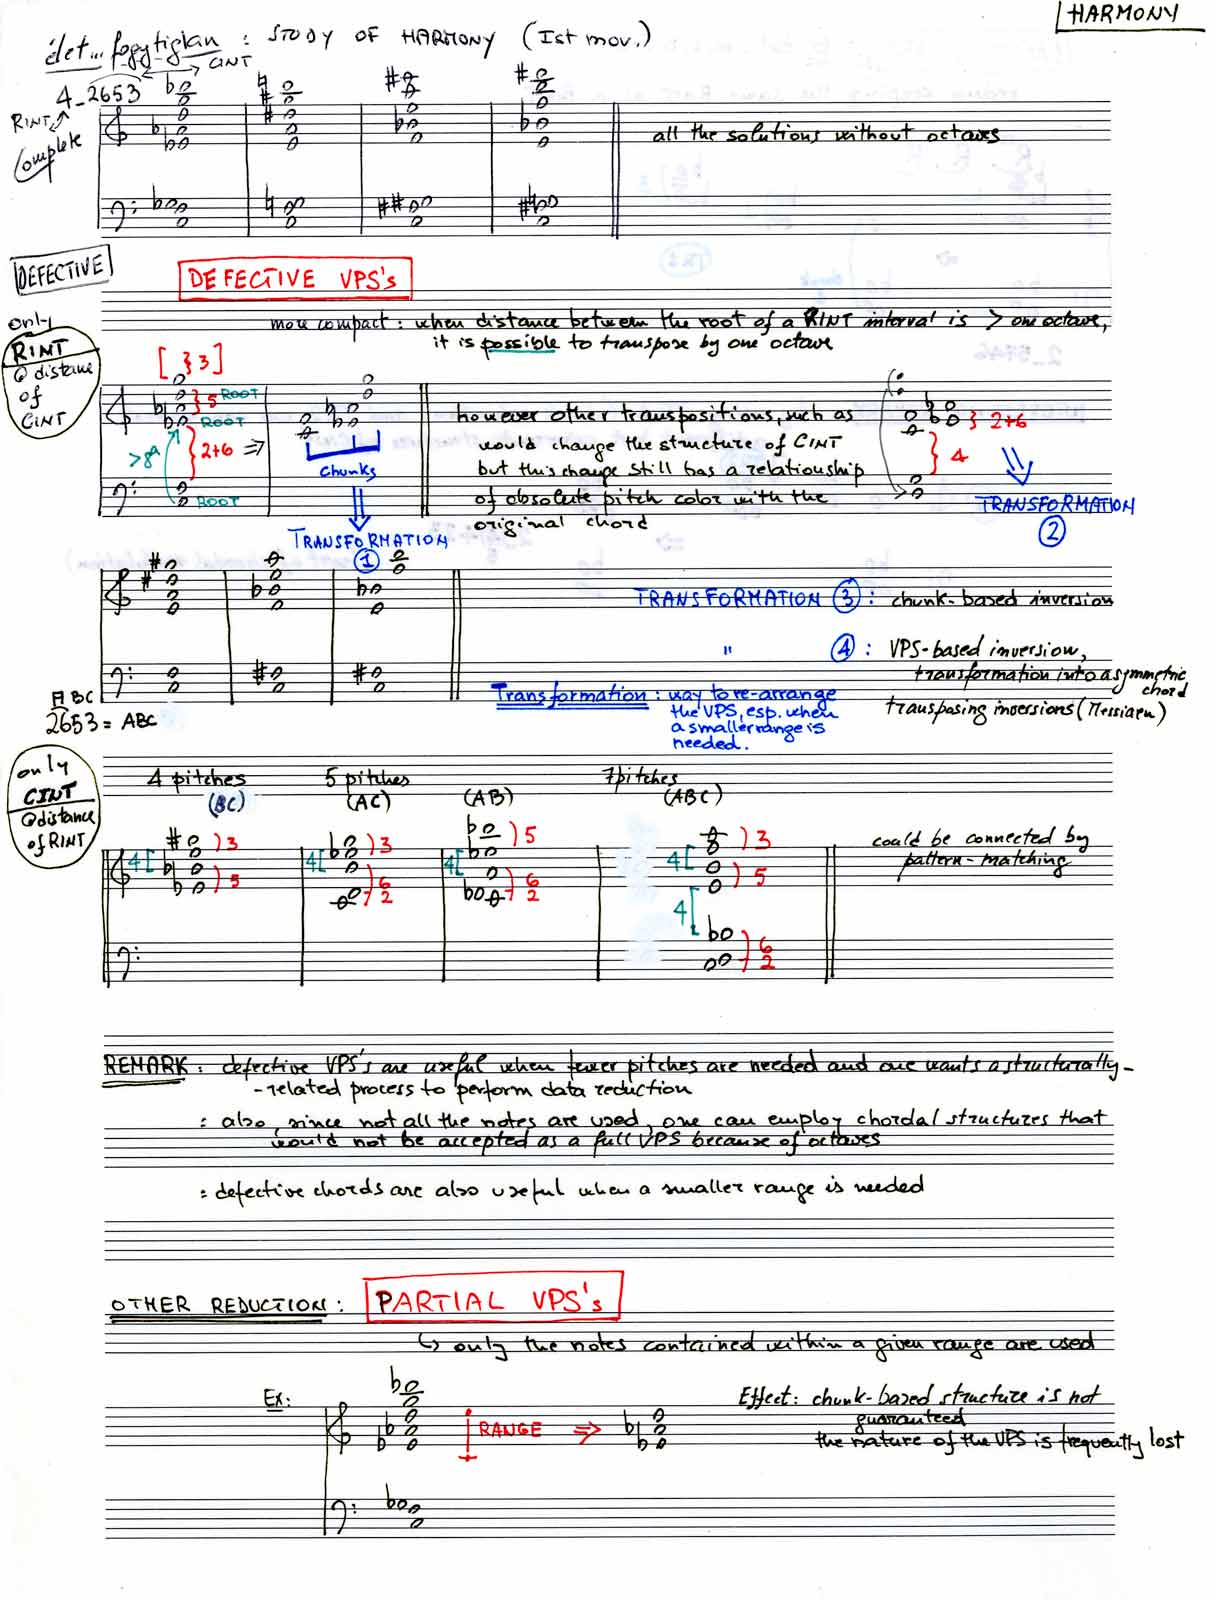 HARMONY
élet... fogytiglan : STUDY OF HARMONY (Ist mov.)
CINT
4_2653
RINT
Complete
all the solutions without octaves
DEFECTIVE
DEFECTIVE VPS's
more compact : when distance between the root of a RINT interval is > one octave,
it is possible to transpose by one octave
only
RINT
@ distance
of
CINT
[ } 3 ]
} 5 ROOT
ROOT
} 2+6 ⇒
> 8ª
ROOT
chunks
TRANSFORMATION
1
however other transpositions, such as
would change the structure of CINT
but this change still has a relationship
of absolute pitch color with the
original chord
} 2+6
} 4
TRANSFORMATION
2
TRANSFORMATION 3 : chunk-based inversion
" 4 : VPS-based inversion,
transformation into a symmetric
chord
transposing inversions (Messiaen)
Transformation : way to re-arrange
the VPS, esp. when
a smaller range is
needed.
ABC
2653 = ABC
only
CINT
@distance
of RINT
4 pitches
(BC)
5 pitches
(AC)
(AB)
7 pitches
(ABC)
4 [ ) 3
) 5
4 [ ) 3
6
2
4 [ ) 5
6
2
4 [ ) 3
) 5
4 [
6
2
could be connected by
pattern-matching
REMARK : defective VPS's are useful when fewer pitches are needed and one wants a structurally-
- related process to perform data reduction
: also, since not all the notes are used, one can employ chordal structures that
would not be accepted as a full VPS because of octaves
: defective chords are also useful when a smaller range is needed
OTHER REDUCTION : PARTIAL VPS's
↳ only the notes contained within a given range are used
Ex:
RANGE ⇒
Effect : chunk-based structure is not
guaranteed
the nature of the VPS is frequently lost